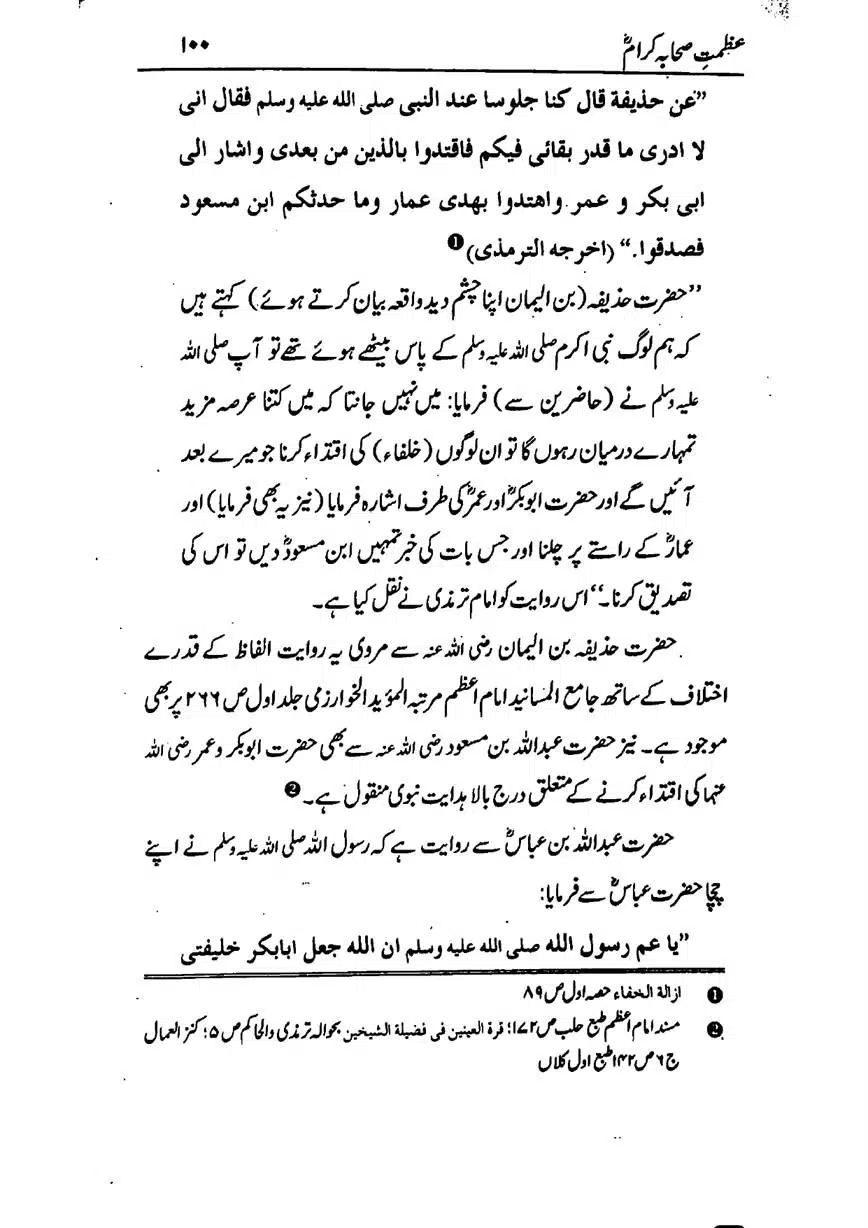 عظمتِ صحابہ کرامؓ ۱۰۰
”عن حذيفة قال كنا جلوسا عند النبى صلى الله عليه وسلم فقال انى
لا ادرى ما قدر بقائى فيكم فاقتدوا بالذين من بعدى واشار الى
ابى بكر و عمر واهتدوا بهدى عمار وما حدثكم ابن مسعود
فصدقوا.“ (اخرجه الترمذى)❶
”حضرت حذیفہ (بن الیمان اپنا چشم دید واقعہ بیان کرتے ہوئے) کہتے ہیں
کہ ہم لوگ نبی اکرم صلی اللہ علیہ وسلم کے پاس بیٹھے ہوئے تھے تو آپ صلی اللہ
علیہ وسلم نے (حاضرین سے) فرمایا: میں نہیں جانتا کہ میں کتنا عرصہ مزید
تمہارے درمیان رہوں گا تو ان لوگوں (خلفاء) کی اقتداء کرنا جو میرے بعد
آئیں گے اور حضرت ابوبکرؓ اور عمرؓ کی طرف اشارہ فرمایا (نیز یہ بھی فرمایا) اور
عمارؓ کے راستے پر چلنا اور جس بات کی خبر تمہیں ابن مسعودؓ دیں تو اس کی
تصدیق کرنا۔“ اس روایت کو امام ترمذی نے نقل کیا ہے۔
حضرت حذیفہ بن الیمان رضی اللہ عنہ سے مروی یہ روایت الفاظ کے قدرے
اختلاف کے ساتھ جامع المسانید امام اعظم مرتبہ المؤید الخوارزمی جلد اول ص ۲۶۶ پر بھی
موجود ہے۔ نیز حضرت عبداللہ بن مسعود رضی اللہ عنہ سے بھی حضرت ابوبکر و عمر رضی اللہ
عنہا کی اقتداء کرنے کے متعلق درج بالا ہدایت نبوی منقول ہے۔❷
حضرت عبداللہ بن عباسؓ سے روایت ہے کہ رسول اللہ صلی اللہ علیہ وسلم نے اپنے
چچا حضرت عباسؓ سے فرمایا:
”يا عم رسول الله صلى الله عليه وسلم ان الله جعل ابابكر خليفتى
❶ ازالة الخفاء حصہ اول ص ۸۹
❷ مسند امام اعظم طبع حلب ص ۱۷۲؛ قرة العينين فى فضيلة الشيخين بحوالہ ترمذی والحاکم ص ۵؛ کنز العمال
ج ۶ ص ۱۴۲ طبع اول کلاں